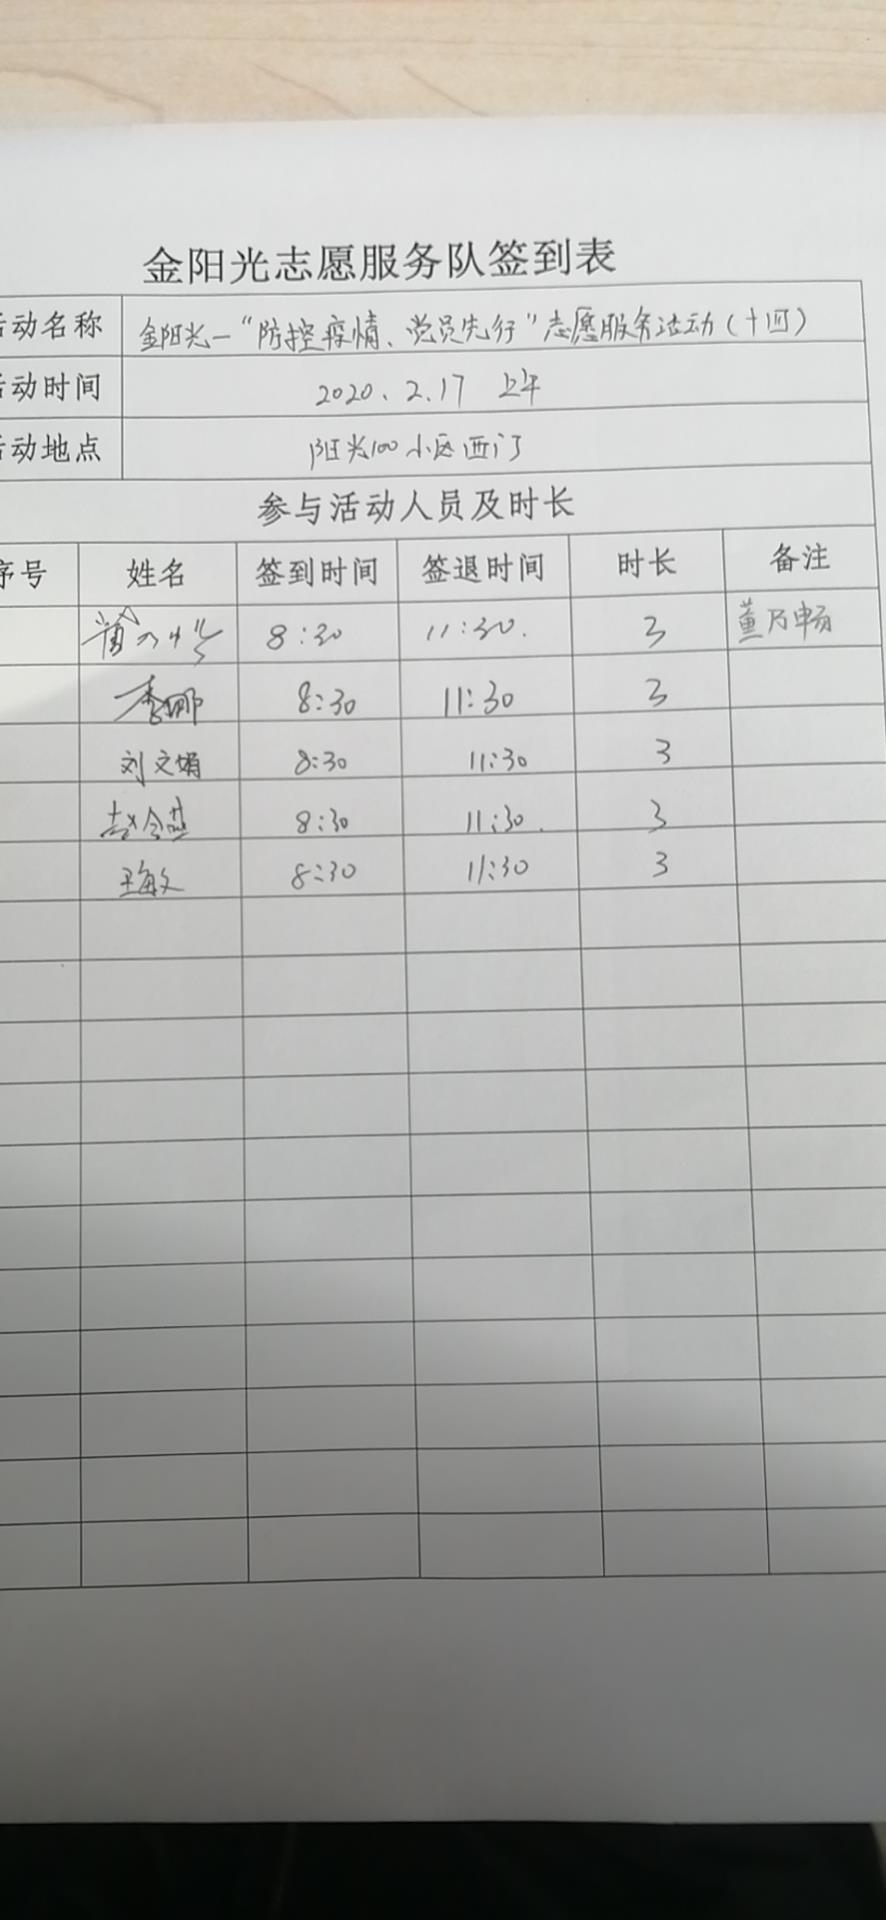 金阳光志愿服务队签到表
活动名称 金阳光—“防控疫情、党员先行”志愿服务活动(十四)
活动时间 2020.2.17 上午
活动地点 阳光100小区西门
参与活动人员及时长
序号 姓名 签到时间 签退时间 时长 备注
8:30 11:30. 3 董乃畅
李娜 8:30 11:30 3
刘文娟 8:30 11:30 3
赵令燕 8:30 11:30. 3
王敏 8:30 11:30 3